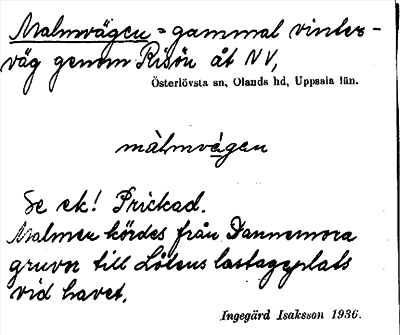 Malmvägen = gammal vinter-
väg genom Risön åt NV,
Österlövsta sn, Olands hd, Uppsala län.
màlmvǟgen
Se ek! Prickad.
Malmen kördes från Dannemora
gruvor till Lötens lastageplats
vid havet.
Ingegärd Isaksson 1936.